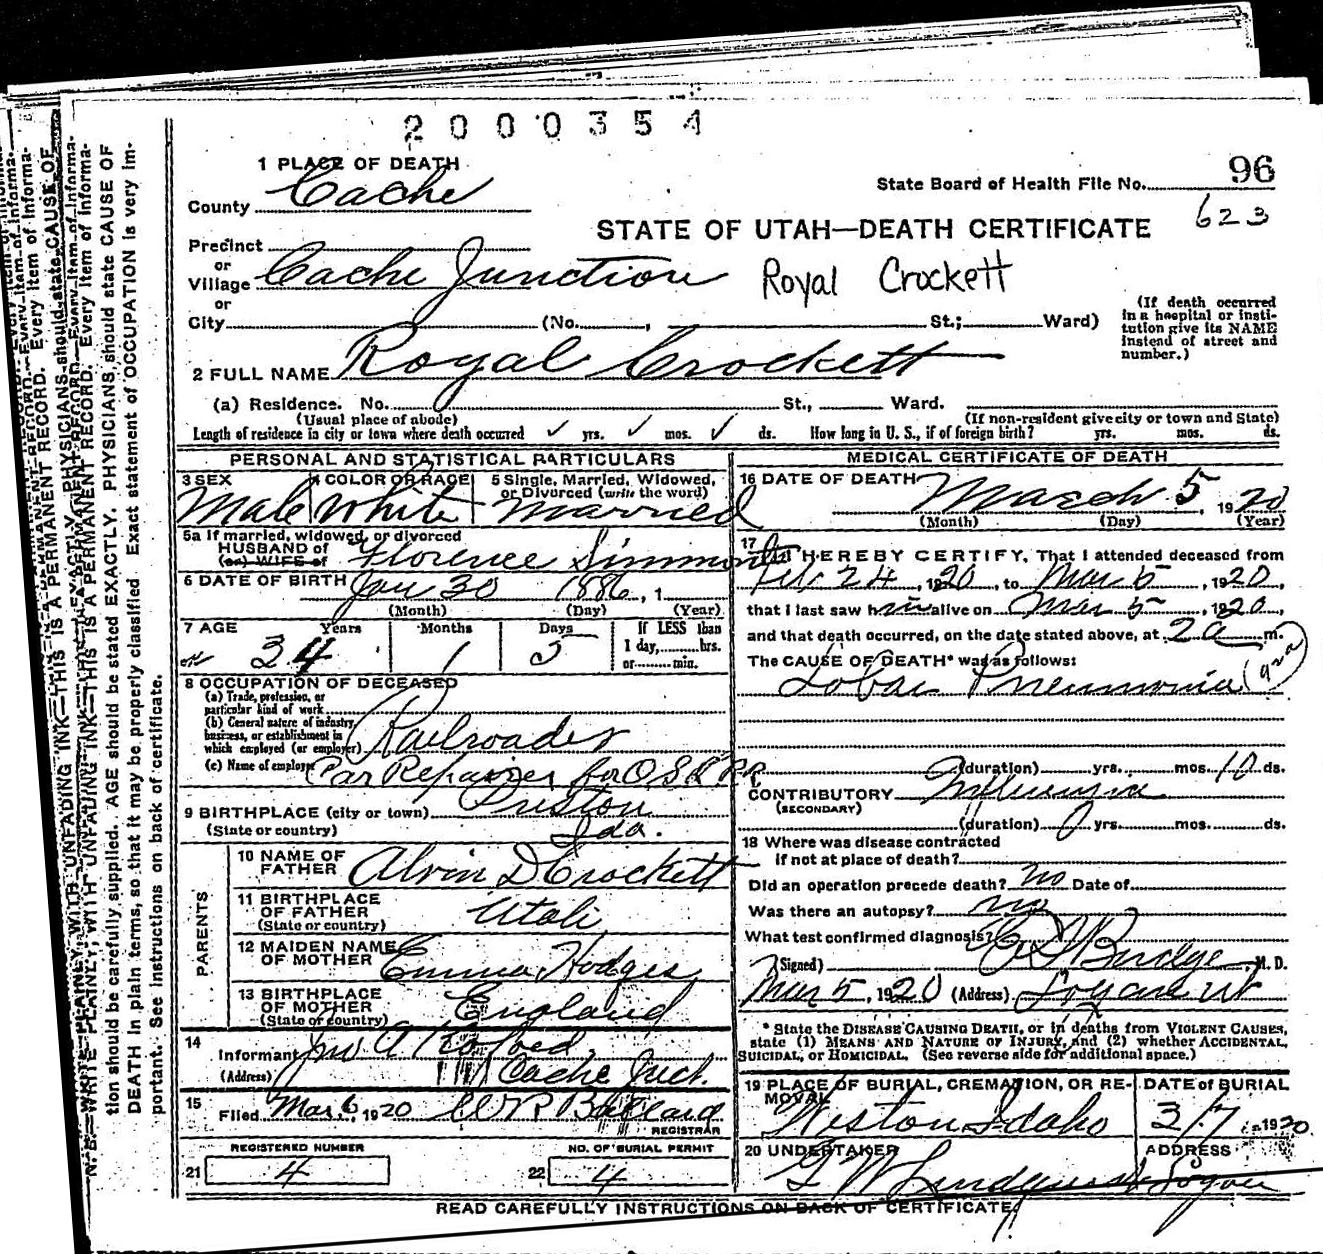 2000354
1 PLACE OF DEATH
96
State Board of Health File No.
County Cache
623
STATE OF UTAH—DEATH CERTIFICATE
Precinct
or
Village Cache Junction
Royal Crockett
or
City (No. , St.; Ward)
(If death occurred in a hospital or insti-
tution give its NAME
instead of street and
number.)
2 FULL NAME Royal Crockett
(a) Residence. No. St., Ward.
(Usual place of abode) (If non-resident give city or town and State)
Length of residence in city or town where death occurred ✓ yrs. ✓ mos. ✓ ds. How long in U. S., if of foreign birth? yrs. mos. ds.
PERSONAL AND STATISTICAL PARTICULARS
3 SEX 4 COLOR OR RACE 5 Single, Married, Widowed,
or Divorced (write the word)
Male White Married
5a If married, widowed, or divorced
HUSBAND of
(or) WIFE of Florence Simmonds
6 DATE OF BIRTH Jan 30 1886, 1
(Month) (Day) (Year)
7 AGE Years Months Days If LESS than
1 day, hrs.
or min.
34 1 5
8 OCCUPATION OF DECEASED
(a) Trade, profession, or
particular kind of work
(b) General nature of industry,
business, or establishment in
which employed (or employer) Railroader
(c) Name of employer Car Repairer for O S L RR
9 BIRTHPLACE (city or town) Preston
(State or country) Ida.
PARENTS
10 NAME OF
FATHER Alvin D Crockett
11 BIRTHPLACE
OF FATHER
(State or country) Utah
12 MAIDEN NAME
OF MOTHER Emma Hodges
13 BIRTHPLACE
OF MOTHER
(State or country) England
14
Informant Jno A
(Address) Cache Junct.
15
Filed Mar 6, 1920 W R Ballard
REGISTRAR
REGISTERED NUMBER NO. OF BURIAL PERMIT
21 4 22 4
MEDICAL CERTIFICATE OF DEATH
16 DATE OF DEATH March 5, 1920
(Month) (Day) (Year)
17
I HEREBY CERTIFY, That I attended deceased from
Feb 24, 1920, to Mar 5, 1920,
that I last saw him alive on Mar 5, 1920,
and that death occurred, on the date stated above, at 2 a m.
The CAUSE OF DEATH* was as follows:
Lobar Pneumonia
(duration) yrs. mos. 10 ds.
CONTRIBUTORY Influenza
(SECONDARY)
(duration) yrs. mos. ds.
18 Where was disease contracted
if not at place of death?
Did an operation precede death? No Date of
Was there an autopsy? no
What test confirmed diagnosis?
(Signed) Budge, M. D.
Mar 5, 1920 (Address) Logan Ut
* State the DISEASE CAUSING DEATH, or in deaths from VIOLENT CAUSES,
state (1) MEANS AND NATURE OF INJURY, and (2) whether ACCIDENTAL,
SUICIDAL, or HOMICIDAL. (See reverse side for additional space.)
19 PLACE OF BURIAL, CREMATION, OR RE-
MOVAL DATE of BURIAL
Weston Idaho 3/7 1920
20 UNDERTAKER ADDRESS
G W Lindquist Logan
READ CAREFULLY INSTRUCTIONS ON BACK OF CERTIFICATE
N. B.—WRITE PLAINLY, WITH UNFADING INK—THIS IS A PERMANENT RECORD. Every item of informa-
tion should be carefully supplied. AGE should be stated EXACTLY. PHYSICIANS should state CAUSE OF
DEATH in plain terms, so that it may be properly classified. Exact statement of OCCUPATION is very im-
portant. See instructions on back of certificate.